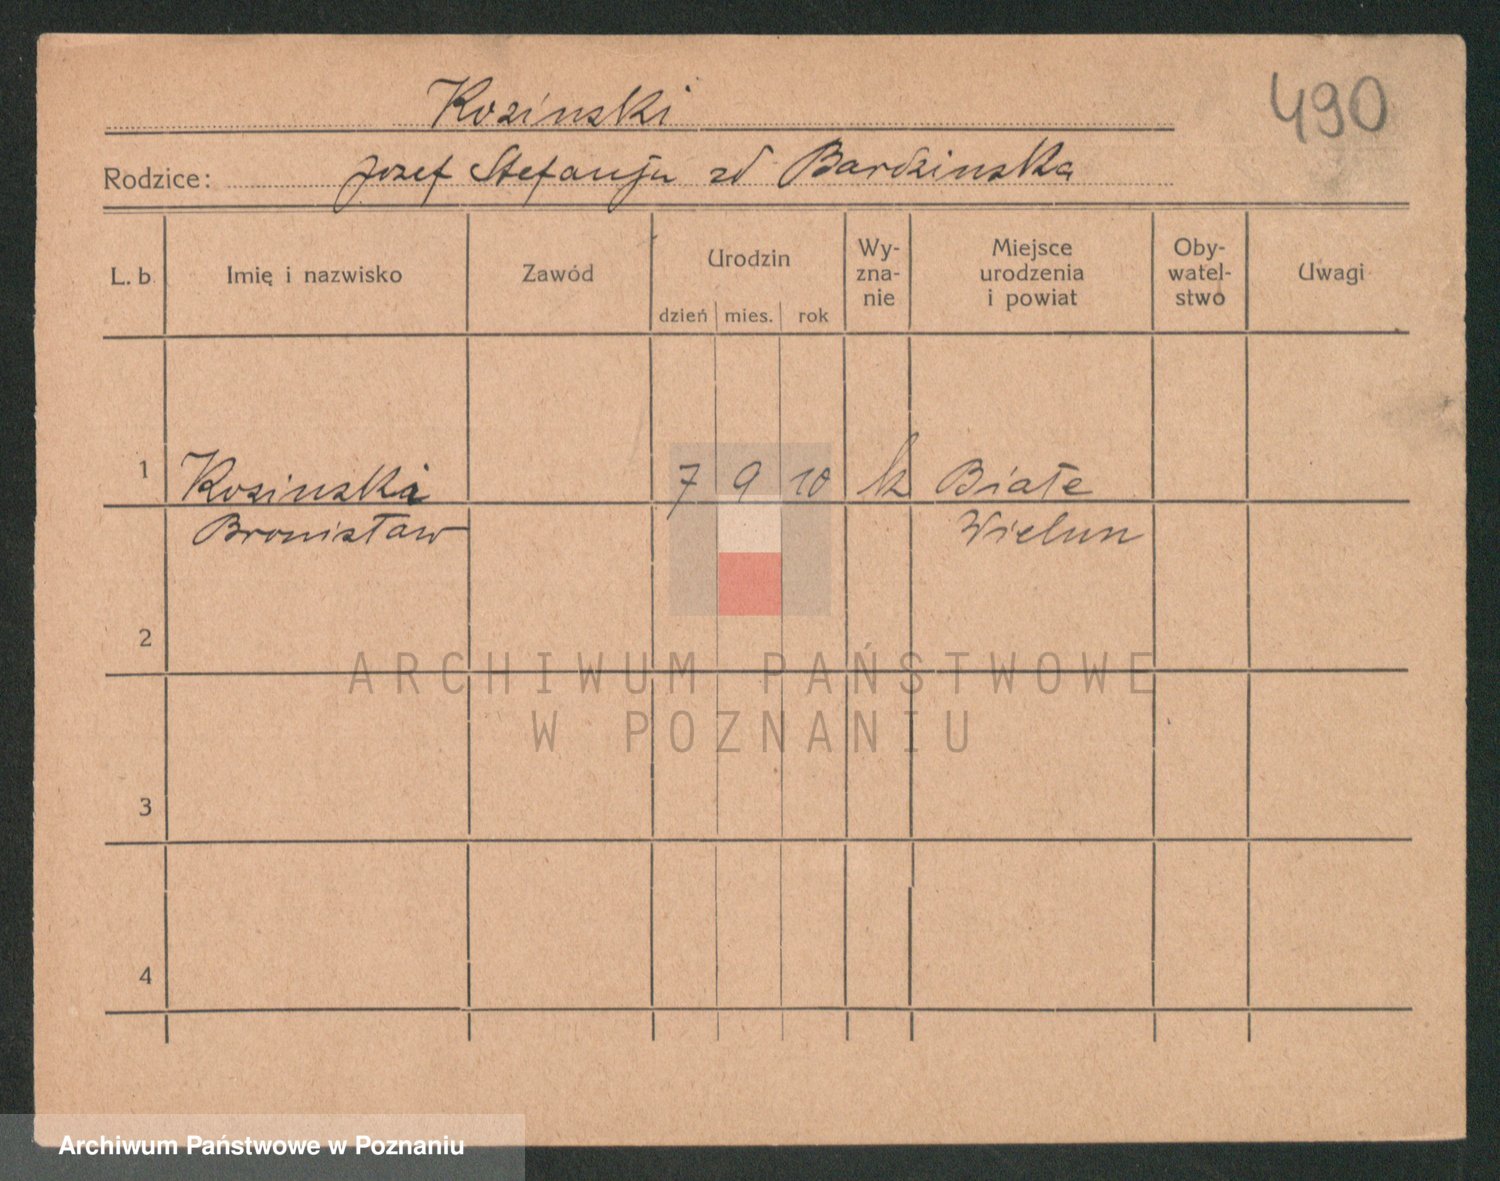 Kozinski
490
Rodzice: Jozef Stefanja zd Bardzinska
L. b. Imię i nazwisko Zawód Urodzin dzień mies. rok Wy-zna-nie Miejsce urodzenia i powiat Oby-watel-stwo Uwagi
1 Kozinski 7 9 10 k Białe
Bronisław Wielun
2
ARCHIWUM PAŃSTWOWE
W POZNANIU
3
4
Archiwum Państwowe w Poznaniu